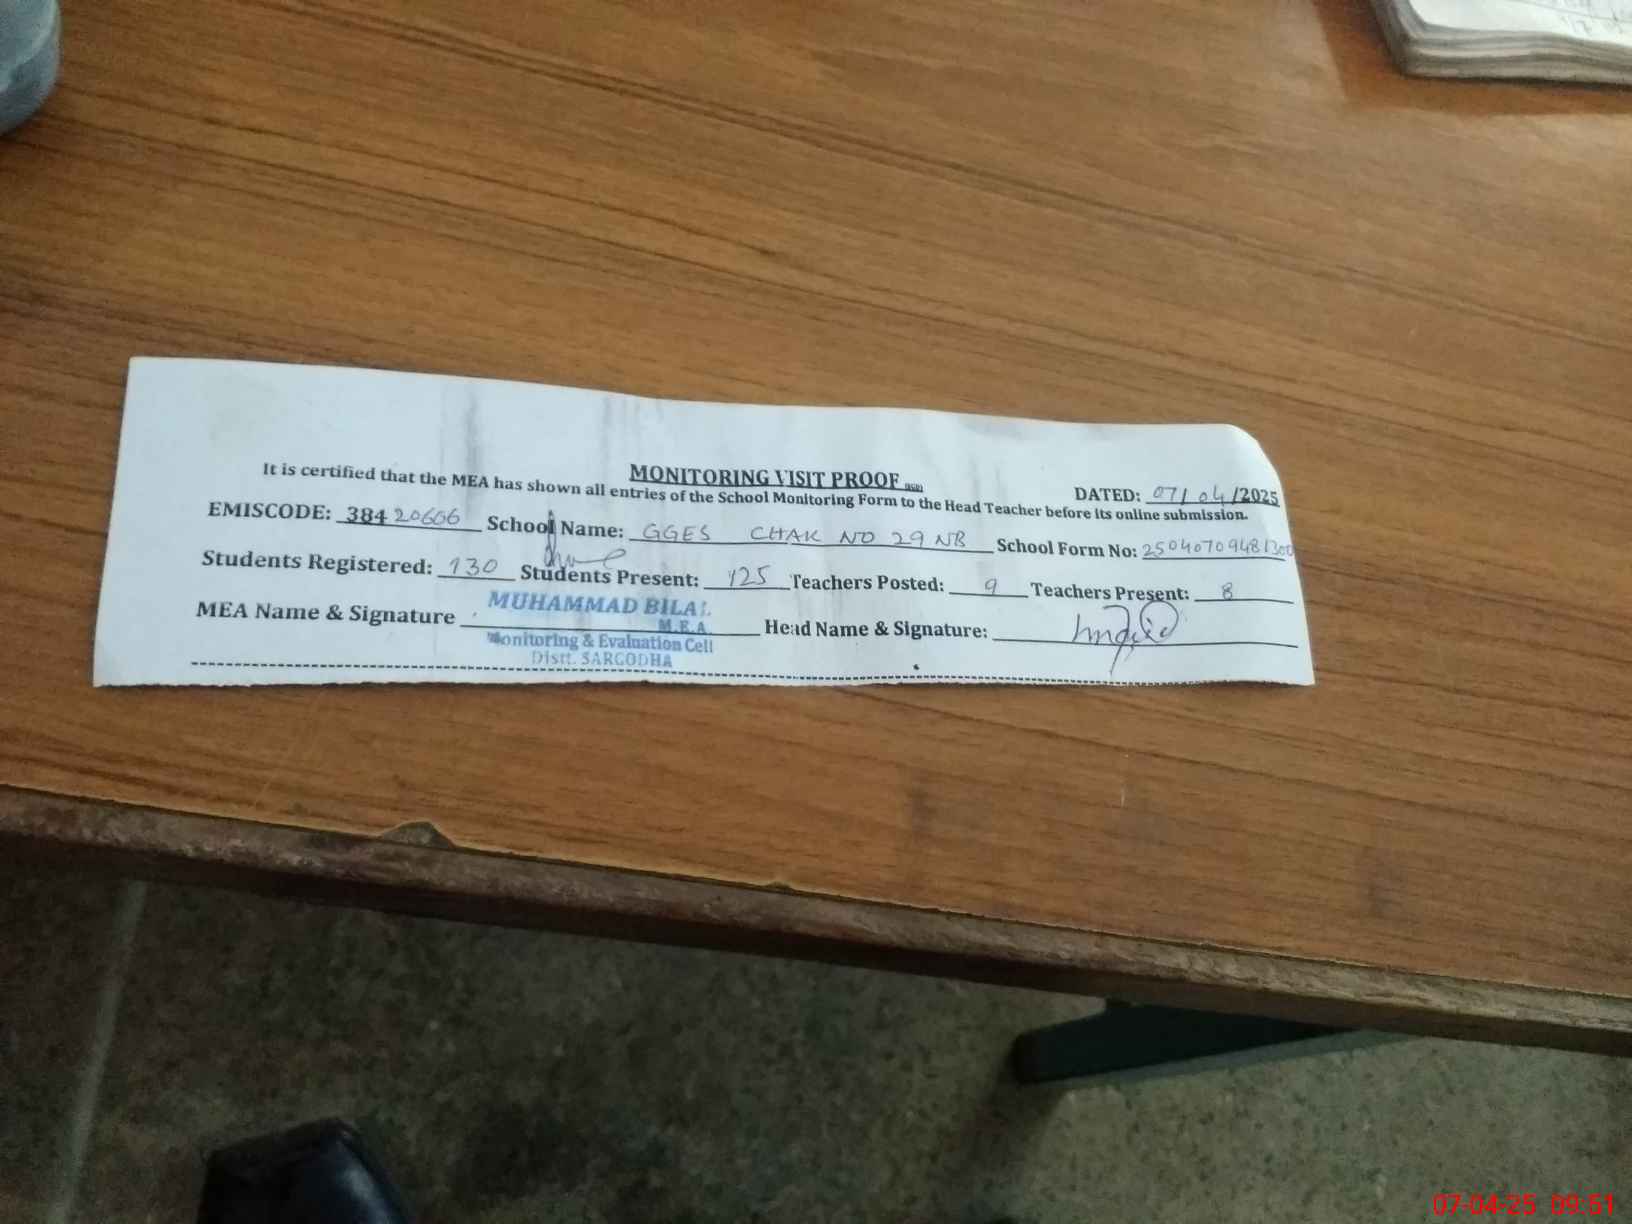 MONITORING VISIT PROOF
DATED: 07/04/2025
It is certified that the MEA has shown all entries of the School Monitoring Form to the Head Teacher before its online submission.
EMISCODE: 38420606 School Name: GGES CHAK NO 29 NB School Form No: 25040709481300
Students Registered: 130 Students Present: 125 Teachers Posted: 9 Teachers Present: 8
MEA Name & Signature MUHAMMAD BILAL Head Name & Signature:
M.E.A.
Monitoring & Evaluation Cell
Distt. SARGODHA
07-04-25 09:51